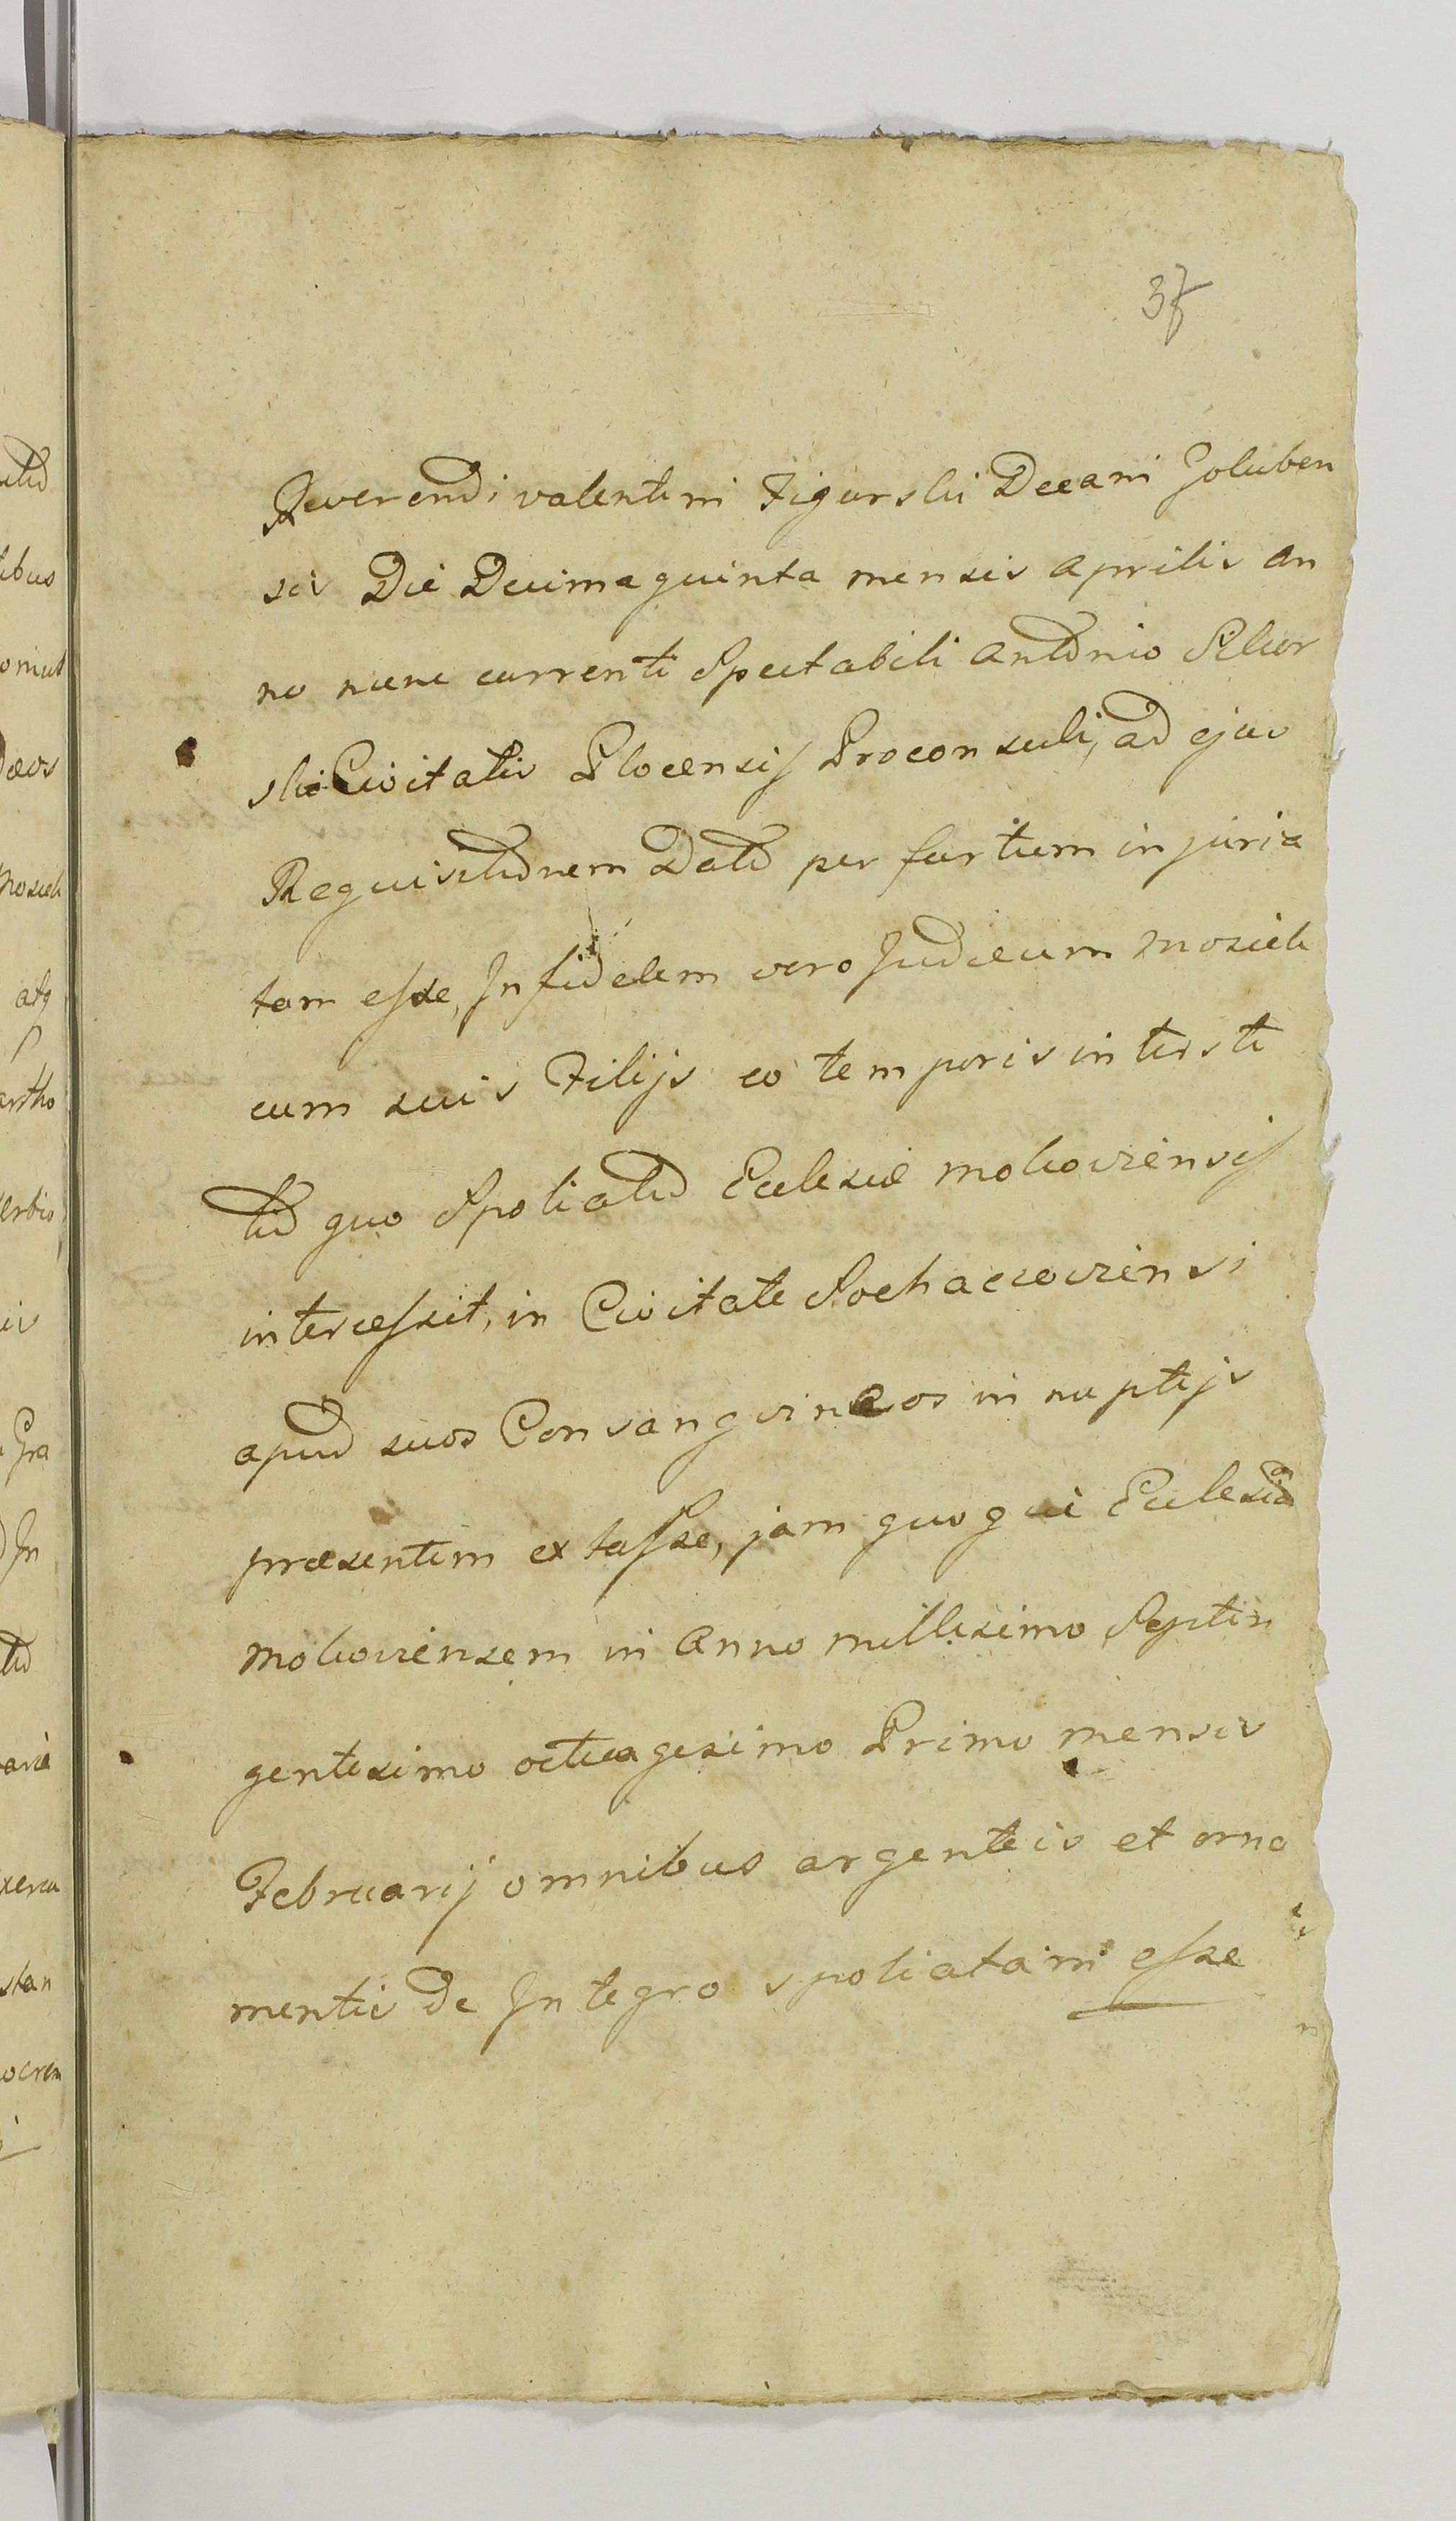 37
Reverendi valentini Figurski Decani Goluben
sis Die Decima quinta mensis Aprilis An
no nunc currenti Spectabili Antonio Sikor
ski Civitatis Plocensis Proconsuli, ad ejus
Requisitionem Dato per furtum injuria
tam esse, Infidelem vero Judaeum Moszek
cum suis Filijs eo temporis intersti
tio quo Spoliatio Eclesiae Mokoviensis
intercessit, in Civitate Sochaczoviensi
apud suos Consangvineos in nuptijs
praesentem extasse, jam quoque Eclesiam
Mokoviensem in Anno millesimo Septin
gentesimo octuagesimo Primo mensis
Februarij omnibus argenteis et orna
mentis de Integro spoliatam esse